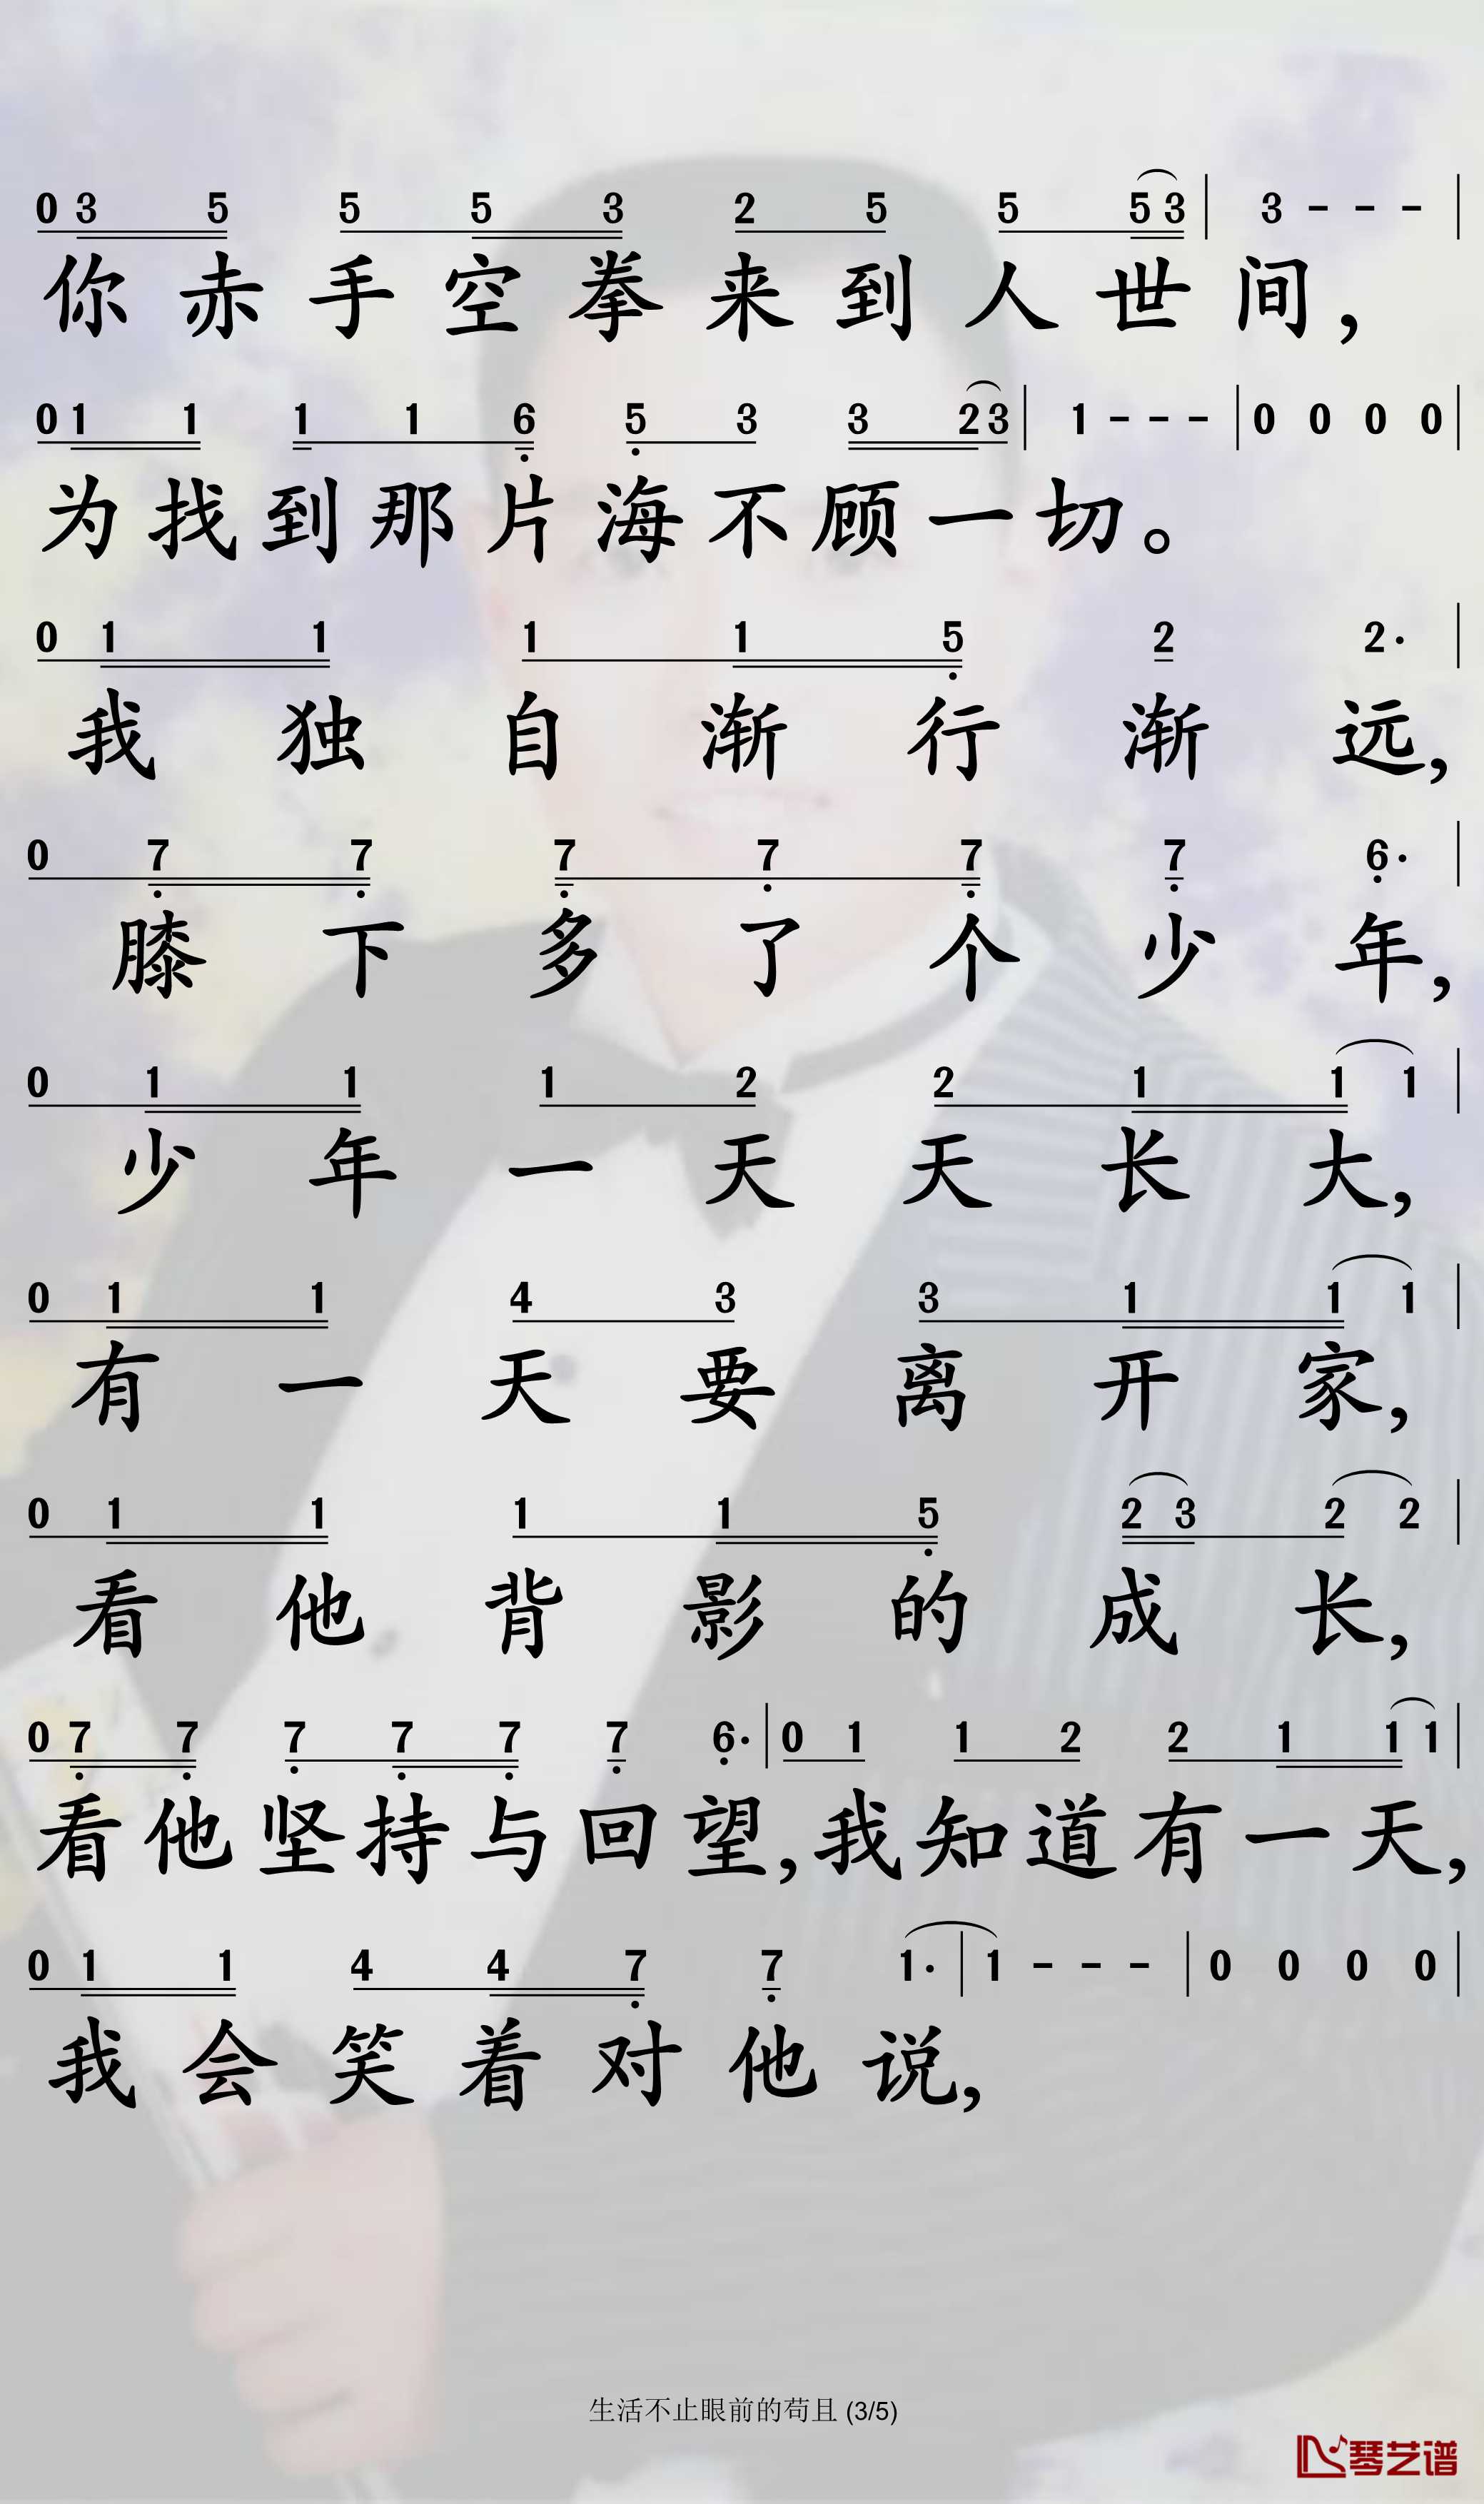 0 3 5 5 5 3 2 5 5 5 3 | 3 - - - |
你赤手空拳来到人世间,
0 1 1 1 1 6 5 3 3 2 3 | 1 - - - | 0 0 0 0 |
为找到那片海不顾一切。
0 1 1 1 1 5 2 2· |
我独自渐行渐远,
0 7 7 7 7 7 7 6· |
膝下多了个少年,
0 1 1 1 2 2 1 1 1 |
少年一天天长大,
0 1 1 4 3 3 1 1 1 |
有一天要离开家,
0 1 1 1 1 5 2 3 2 2 |
看他背影的成长,
0 7 7 7 7 7 7 6· | 0 1 1 2 2 1 1 1 |
看他坚持与回望,我知道有一天,
0 1 1 4 4 7 7 1· | 1 - - - | 0 0 0 0 |
我会笑着对他说,
生活不止眼前的苟且 (3/5)
琴艺谱